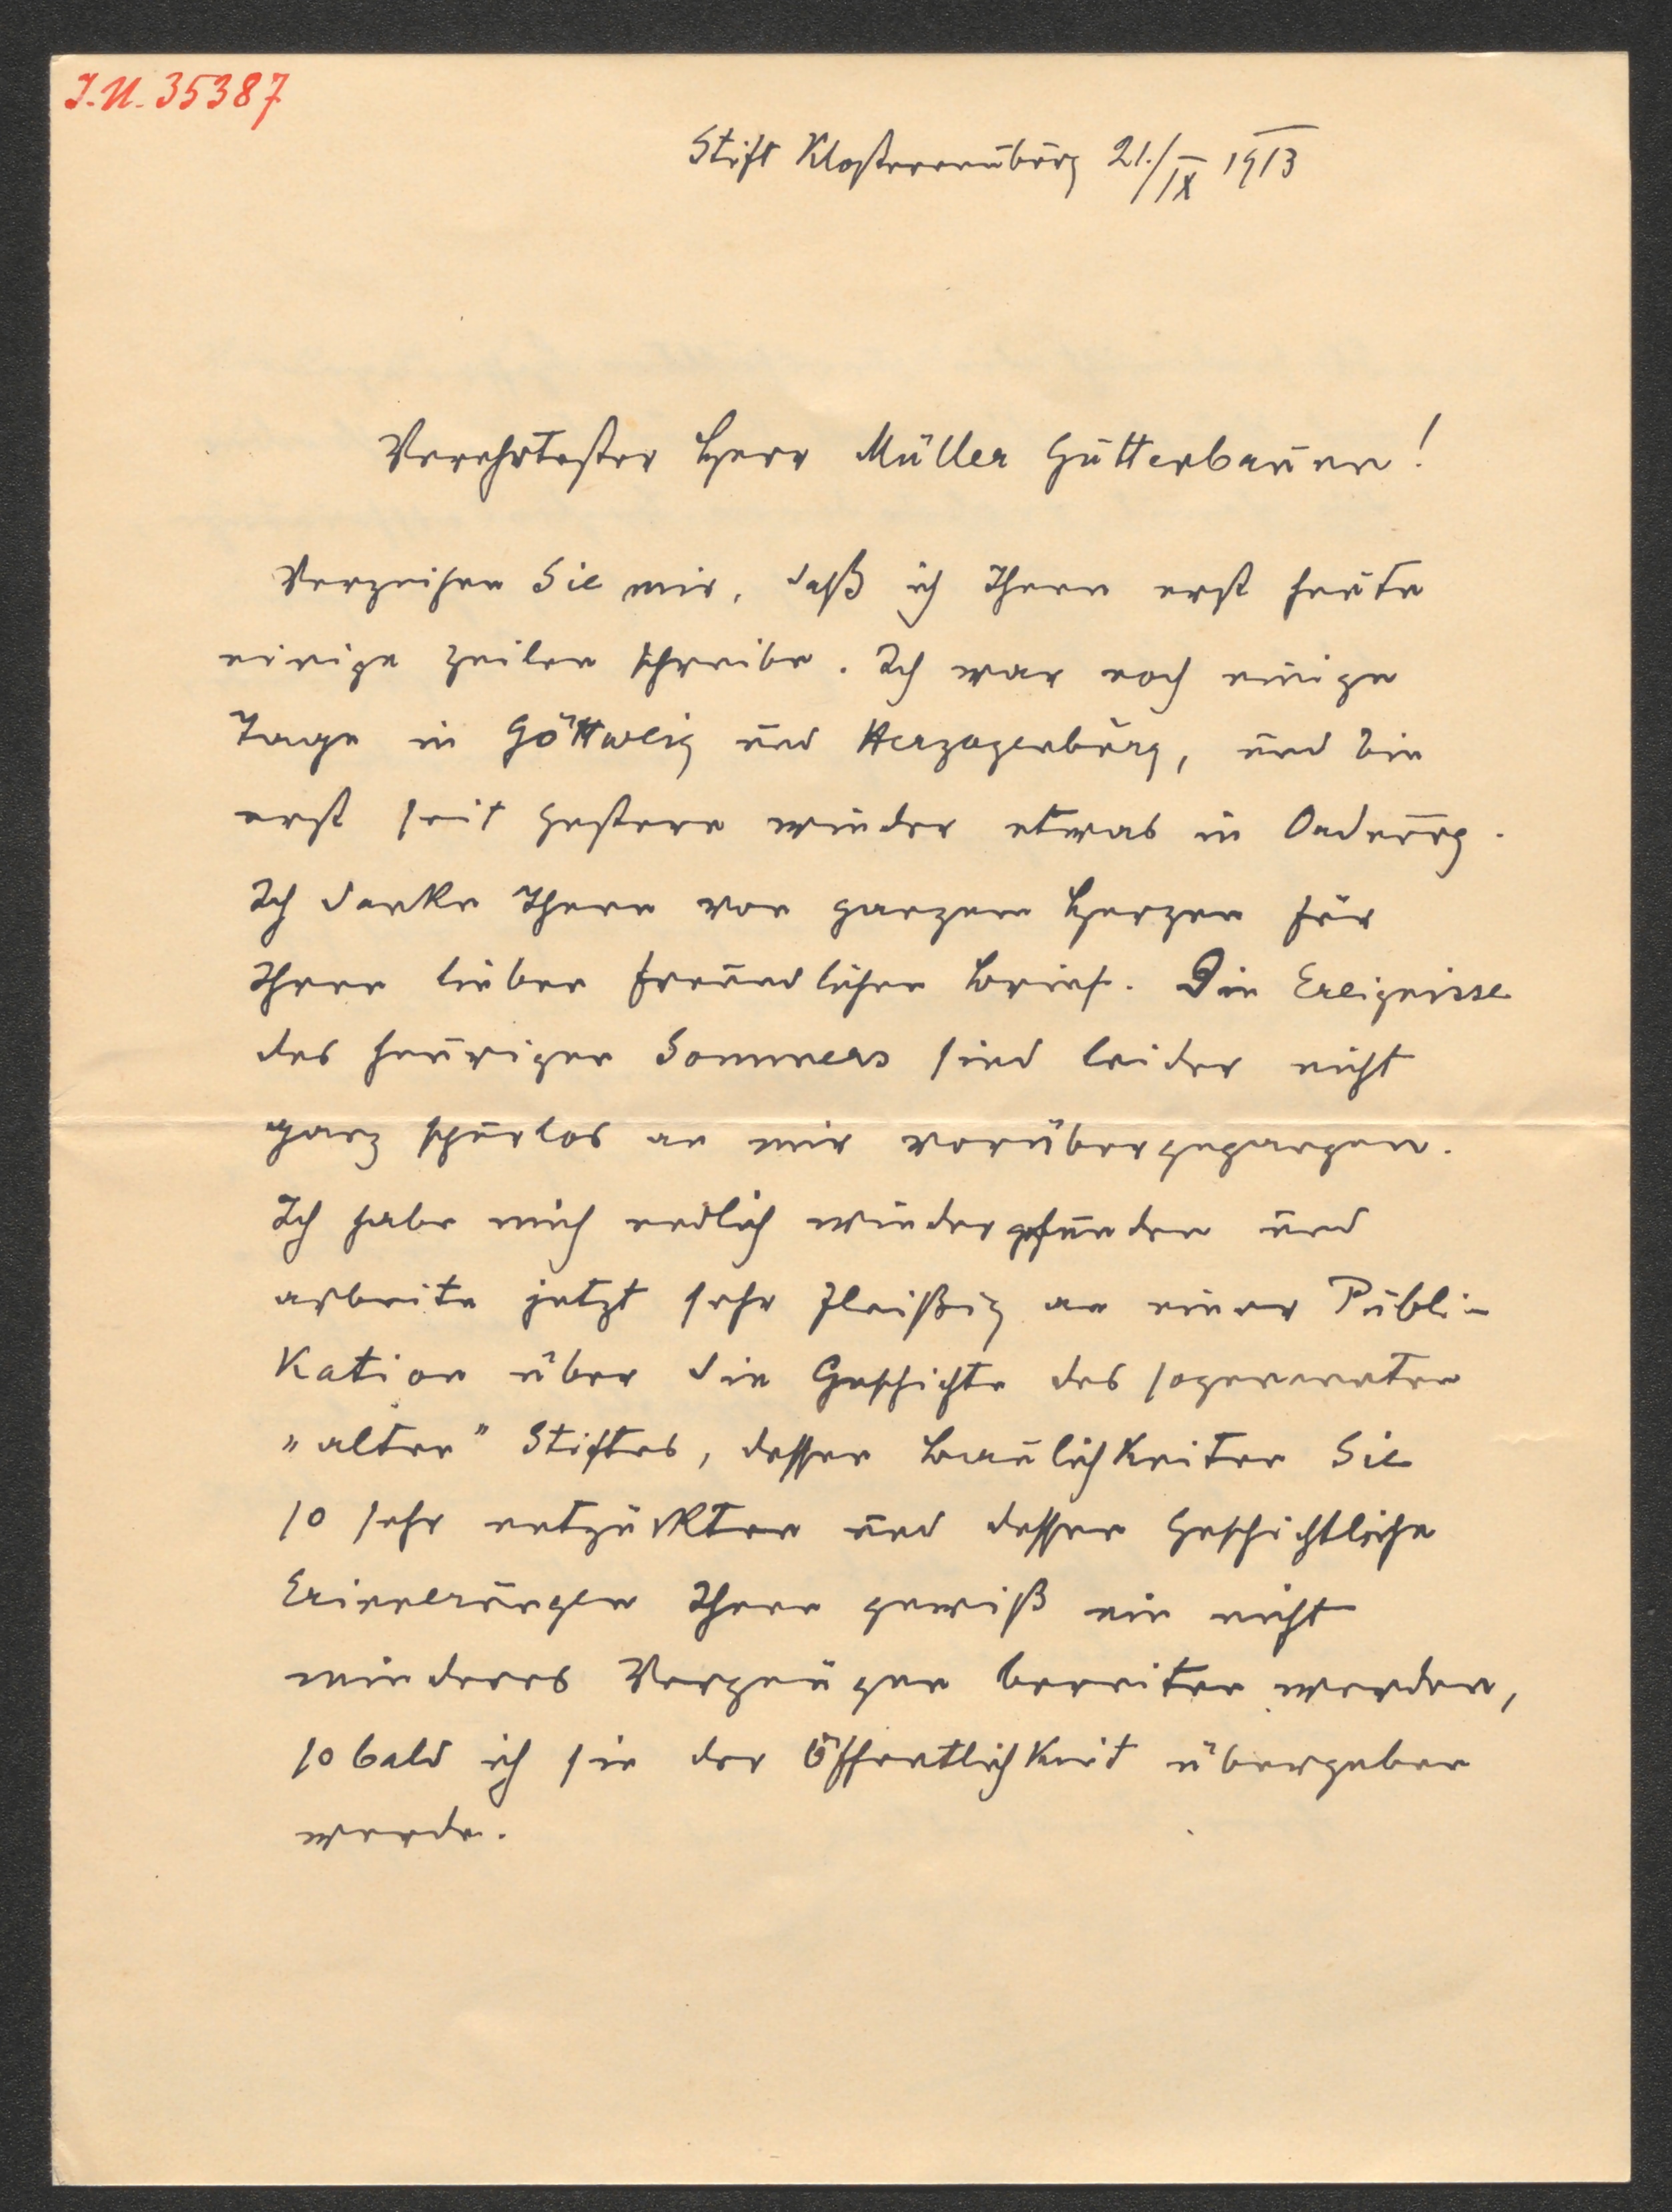 I.N. 35387
Stift Klosterneuburg 21./IX 1913
Verehrtester Herr Müller Guttenbrunn!
Verzeihen Sie mir, daß ich Ihnen erst heute
einige Zeilen schreibe. Ich war noch einige
Tage in Göttweig und Herzogenburg, und bin
erst seit gestern wieder etwas in Ordnung.
Ich danke Ihnen von ganzem Herzen für
Ihren lieben freundlichen Brief. Die Ereignisse
des heurigen Sommers sind leider nicht
ganz spurlos an mir vorübergegangen.
Ich habe mich endlich wiedergefunden und
arbeite jetzt sehr fleißig an einer Publi-
kation über die Geschichte des sogenannten
„alten" Stiftes, dessen Baulichkeiten Sie
so sehr entzückten und dessen geschichtliche
Erinnerungen Ihnen gewiß ein nicht
minderes Vergnügen bereiten werden,
sobald ich sie der Öffentlichkeit übergeben
werde.